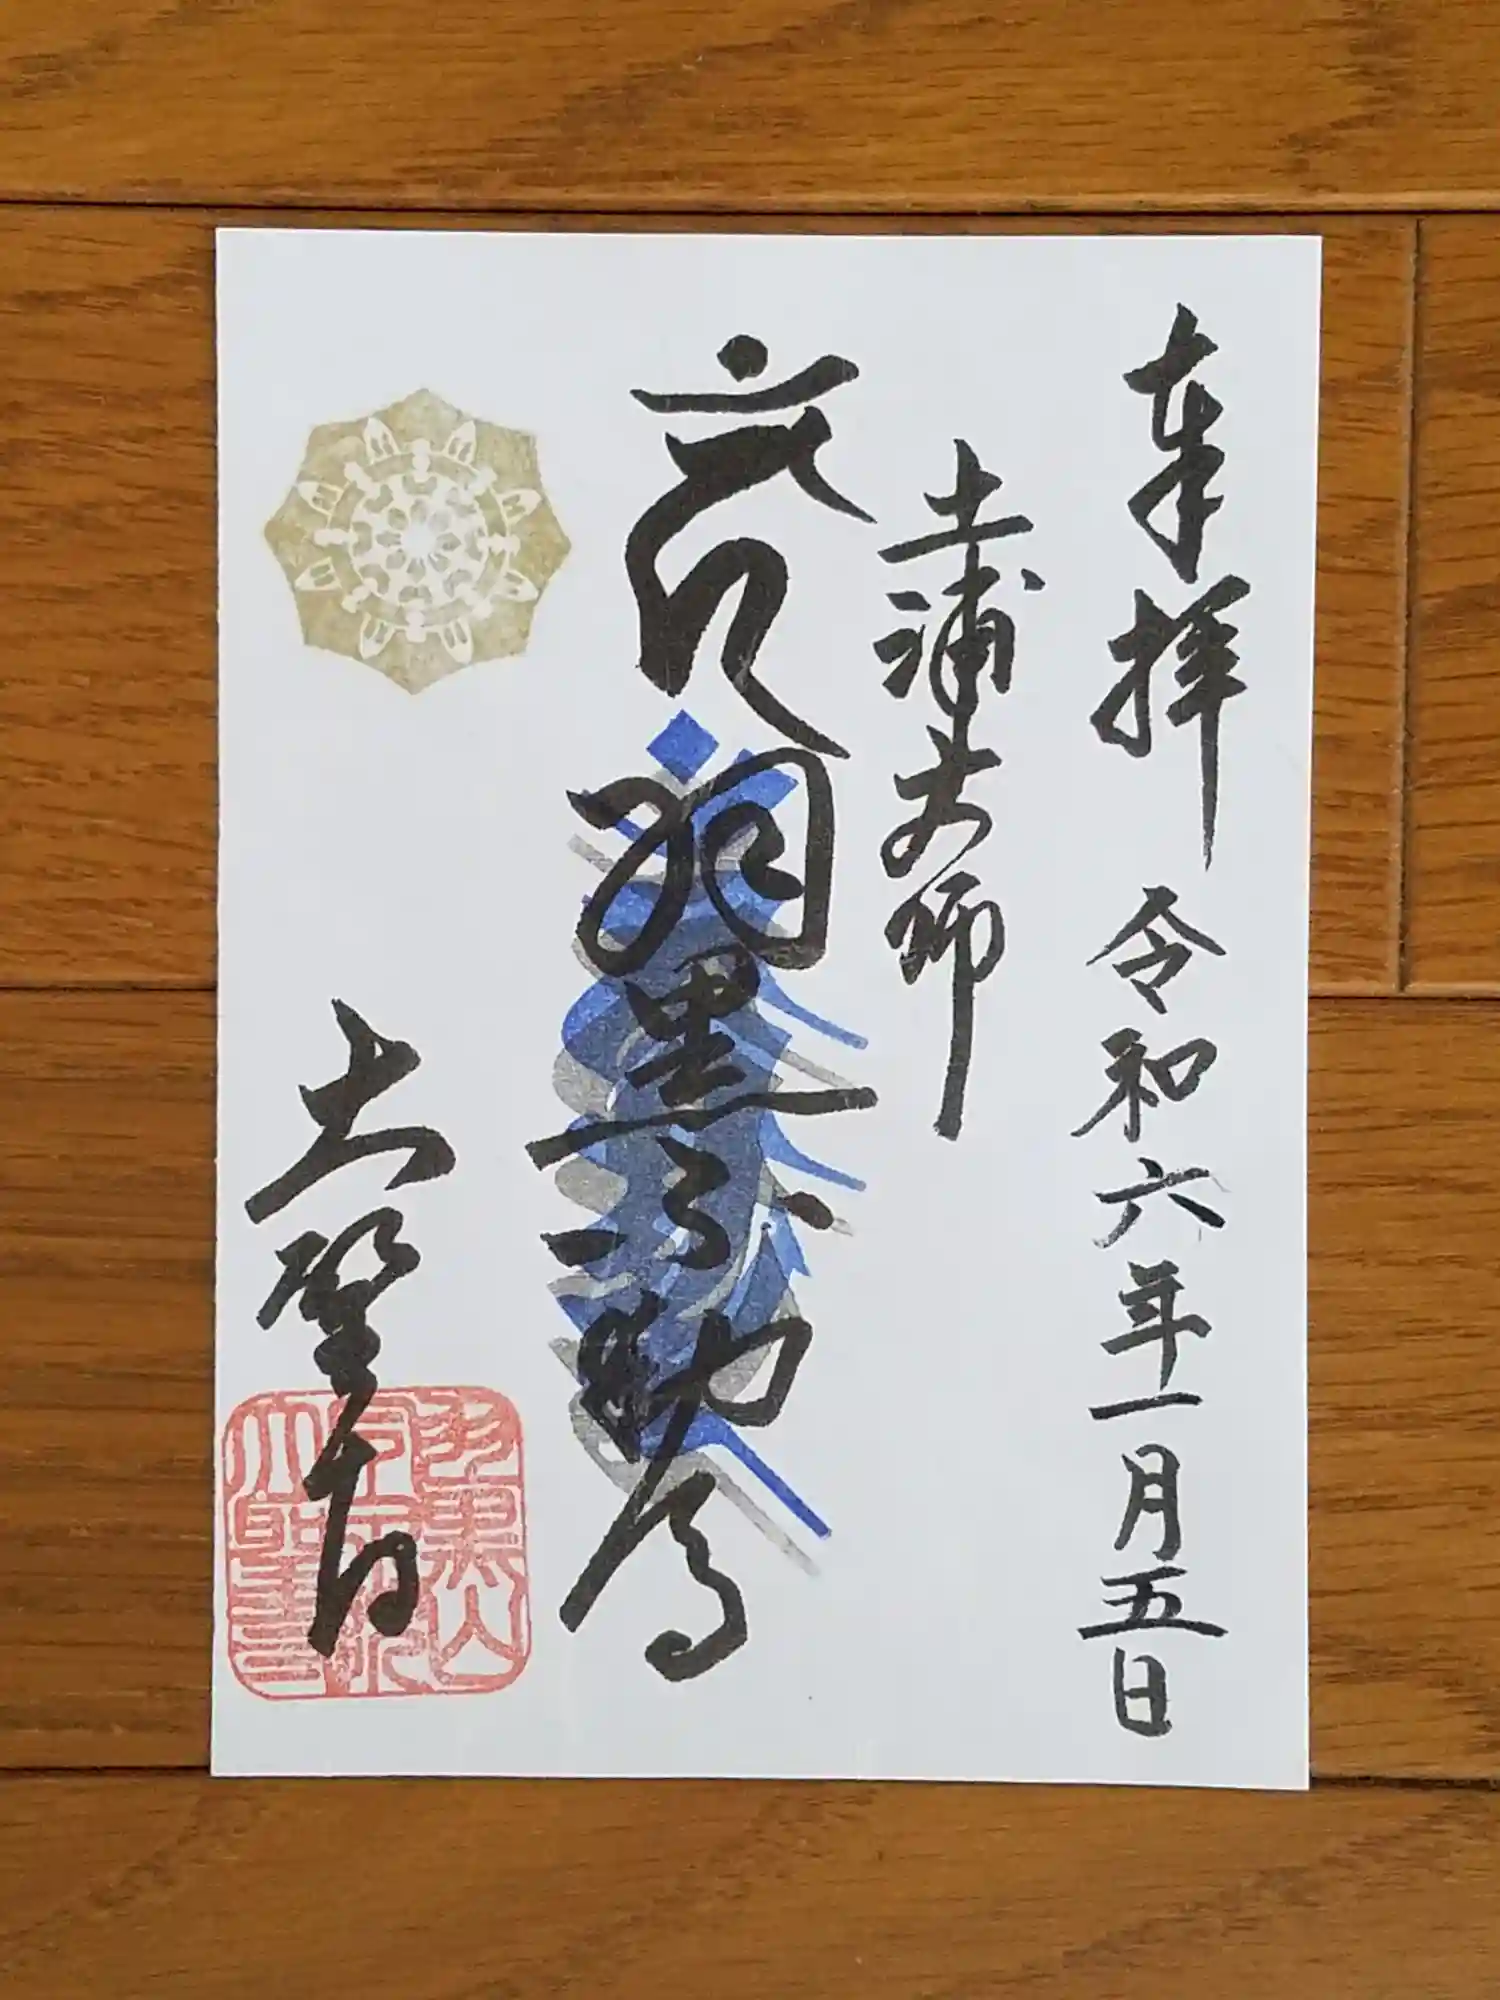 奉拝 令和六年一月五日
土浦大師
羽黒不動尊
大聖寺